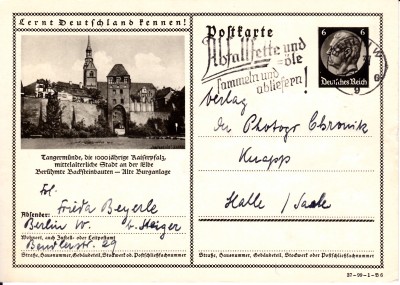 Lernt Deutschland kennen!
Tangermünde, die 1000jährige Kaiserpfalz,
mittelalterliche Stadt an der Elbe
Berühmte Backsteinbauten — Alte Burganlage
Frl.
Absender: Frieda Beyerle
Berlin W. b. Steiger
Wohnort, auch Zustell- oder Leitpostamt
Bendlerstr. 29
Straße, Hausnummer, Gebäudeteil, Stockwerk od. Postschließfachnummer
Postkarte
6 6
Deutsches Reich
Abfallfette und
-öle
sammeln und
abliefern!
Verlag
der Photogr. Chronik
Knapp
Halle / Saale
Straße, Hausnummer, Gebäudeteil, Stockwerk oder Postschließfachnummer
37-90-1-B6